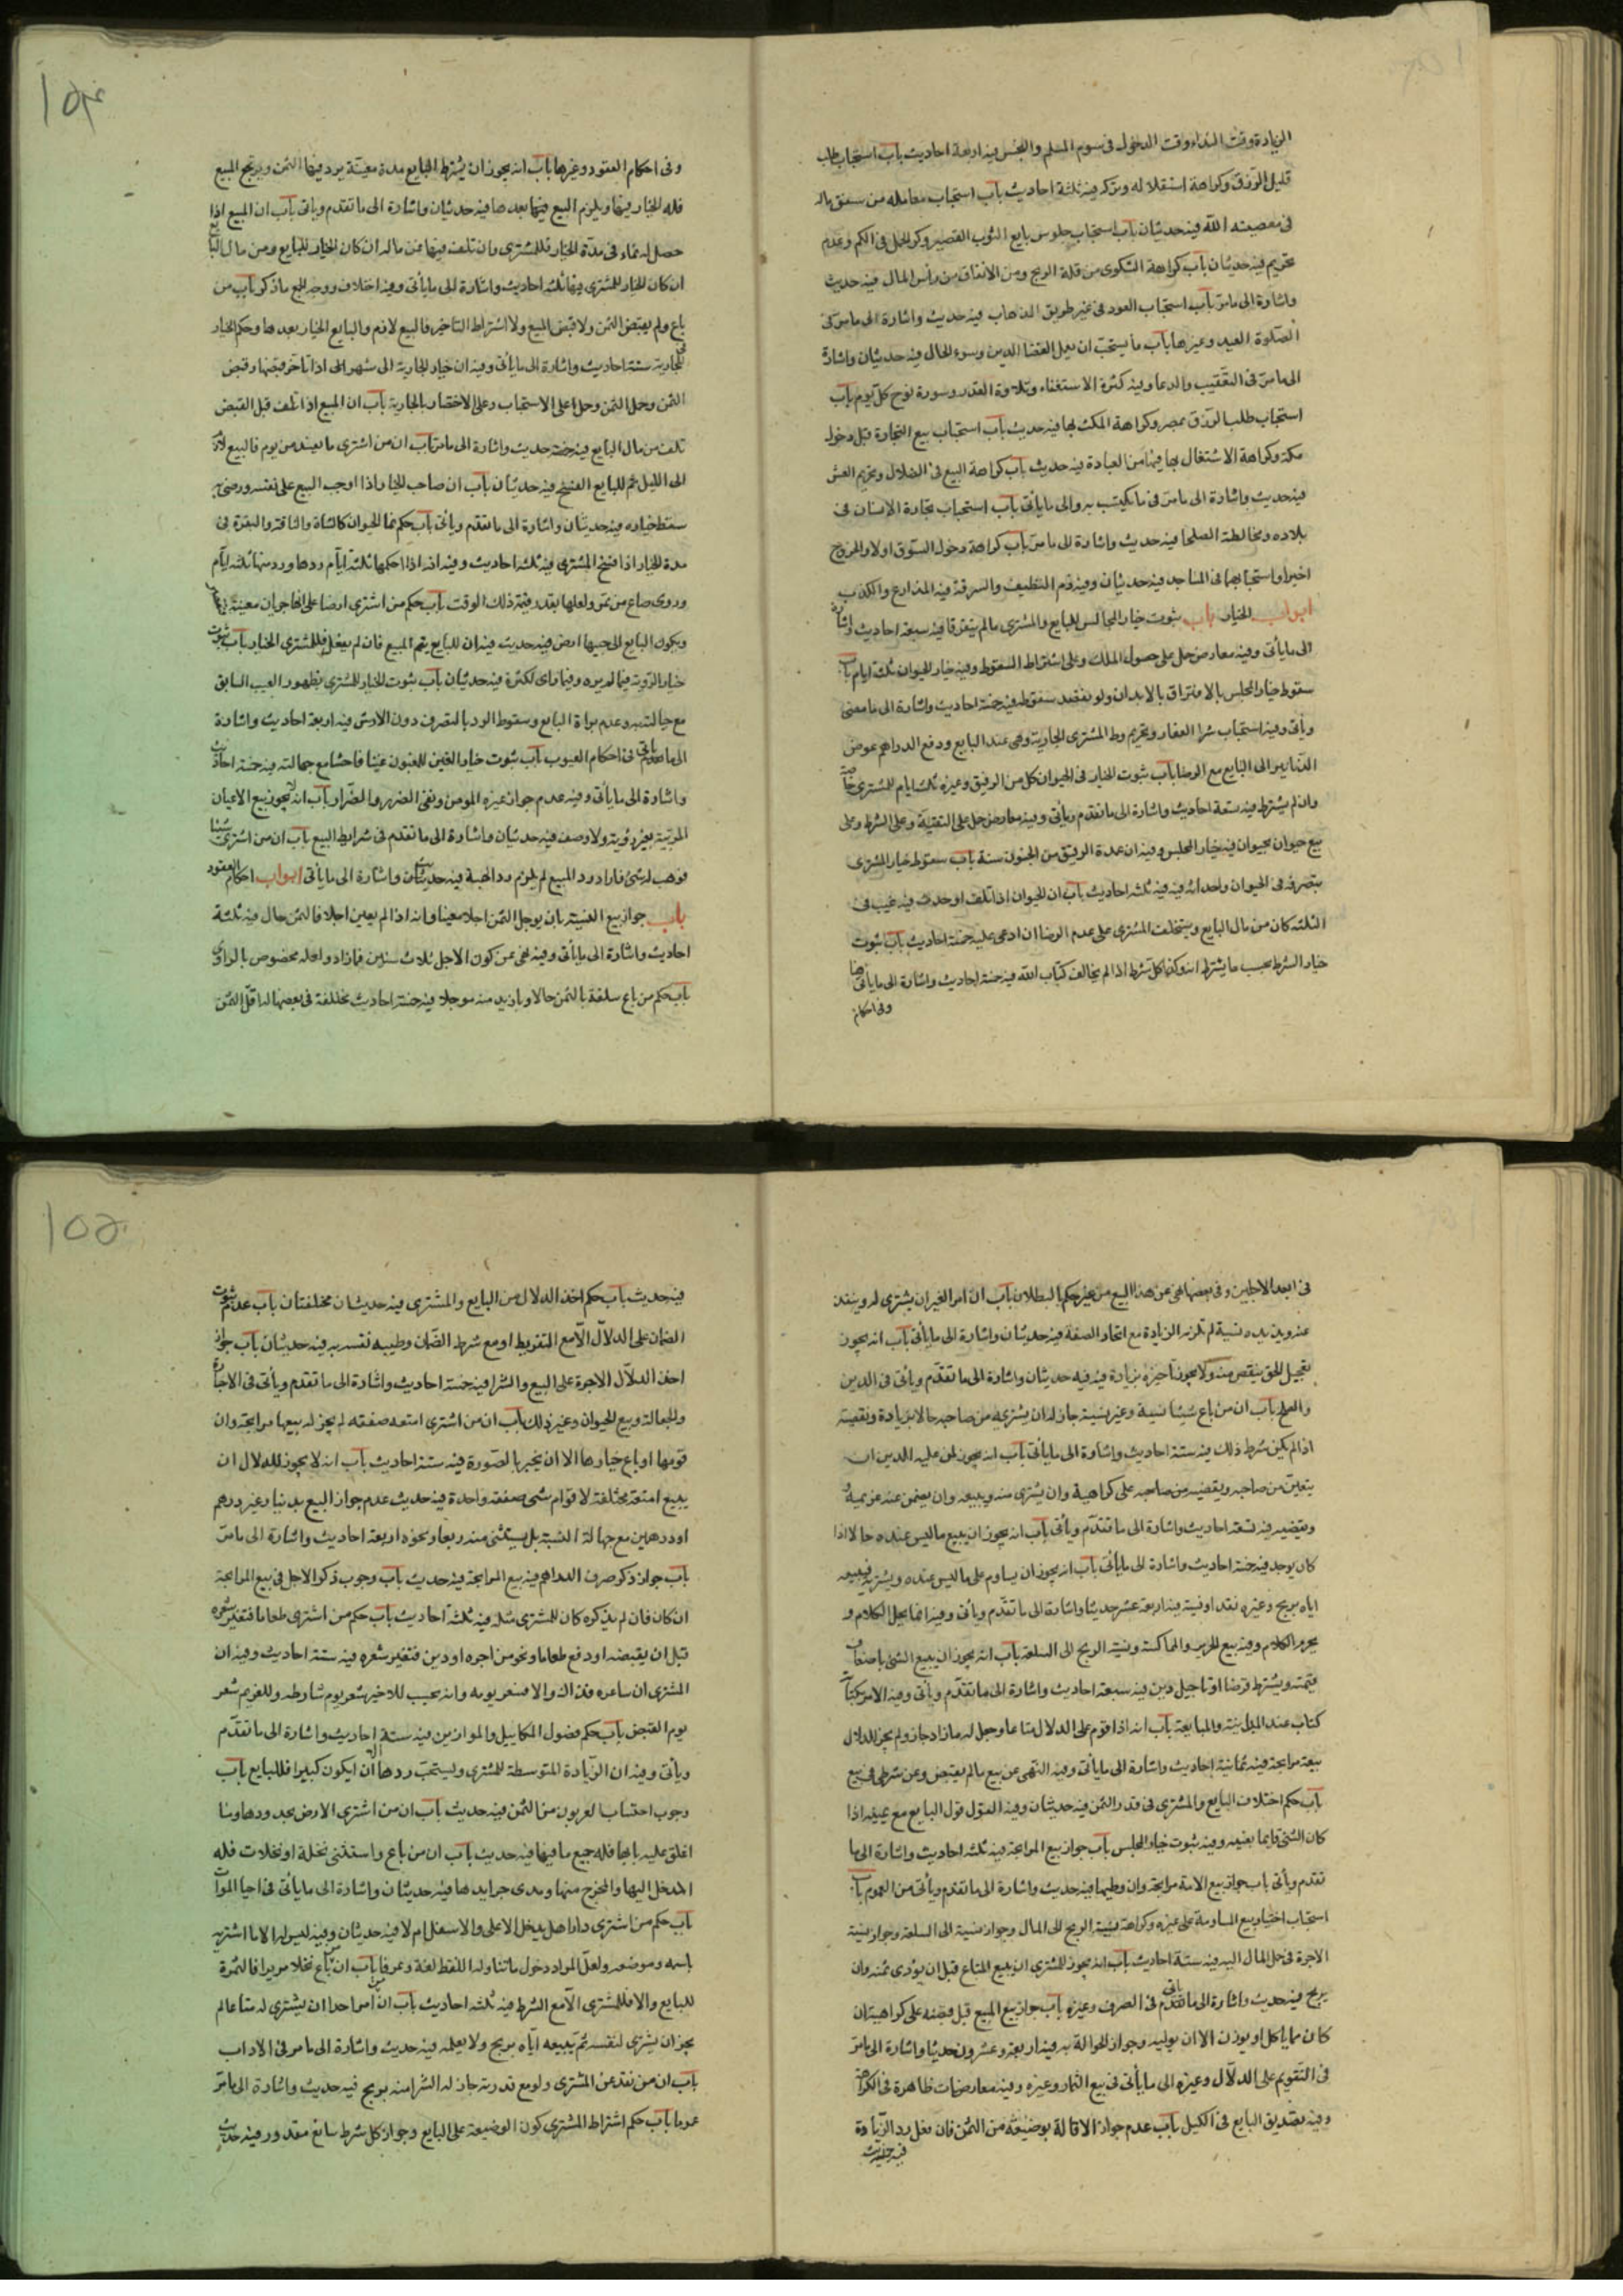 الزيادة وقت النداء وقت الدخول في سوم المسلم والنجش فيه اربعة احاديث باب استحباب طلب
قليل الرزق وكراهة استقلاله وتركه فيه ثلثة احاديث باب استحباب معامله من سعق ماله
في معصيته الله فيه حديثان باب استحباب جلوس بايع الثوب القصير وكو الحمل في الكم وعدم
تحريم فيه حديثان باب كراهة الشكوى من قلة الربح ومن الانفاق من رأس المال فيه حديث
واشارة الى ما مر باب استحباب العود في غير طريق الذهاب فيه حديث واشارة الى ما مر في
الصلوة العيد وغيرها باب ما يستحب ان يعمل لقضا الدين وسوء الحال فيه حديثان واشارة
الى ما مر في التعقيب والدعا وفيه كثرة الاستغفاء وتلاوة القدر وسورة نوح كل يوم باب
استحباب طلب الرزق بمصر وكراهة المكث بها فيه حديث باب استحباب بيع التجارة قبل دخول
مكة وكراهة الاشتغال بها فيها من العبادة فيه حديث باب كراهة البيع في الضلال وتحريم الغش
فيه حديث واشارة الى ما مر في ما يكتسب به والى ما يأتي باب استحباب تجارة الانسان في
بلاده ومخالطته الصلحا فيه حديث واشارة الى ما مر باب كراهة دخول السوق اولا والخروج
اخيرا واستحبابهما في المساجد فيه حديثان وفيه ذم التطفيف والسرقة فيه المذارع والكذب
ابواب الخيار باب ثبوت خيار المجالس للبايع والمشتري ما لم يتفرقا فيه سبعة احاديث واشارة
الى ما يأتي وفيه معارض حمل على حصول الملك وعلى اشتراط السقوط وفيه خيار الحيوان ثلثة ايام باب
سقوط خيار المجلس بالافتراق بالابدان ولو بقصد سقوطه فيه خمسة احاديث واشارة الى ما مضى
ويأتي وفيه استحباب شرا العقار وتحريم وط المشتري الجارية وهي عند البايع ودفع الدراهم عوض
الدنانير الى البايع مع الرضا باب ثبوت الخيار في الحيوان كل من الرقيق وغيره ثلثة ايام للمشتري خاصة
وان لم يشترط فيه تسعة احاديث واشارة الى ما تقدم ويأتي وفيه معارض حمل على التقية وعلى الشرط وعلى
بيع حيوان بحيوان فيه خيار المجلس وفيه ان عهدة الرقيق من الجنون سنة باب سقوط خيار المشتري
بتصرفه في الحيوان واحداثه فيه فيه ثلثة احاديث باب ان الحيوان اذا تلف او حدث فيه عيب في
الثلثة كان من مال البايع ويستحلف المشتري على عدم الرضا ان ادعى عليه خمسة احاديث باب ثبوت
خيار الشرط بحسب ما يشترط انه وكذا كل شرط اذا لم يخالف كتاب الله فيه خمسة احاديث واشارة الى ما يأتي هنا
وفي احكام
١٥٤
وفي احكام العقود وغيرها باب انه يجوز ان يشترط البايع مدة معينة يرد فيها الثمن ويرتجع المبيع
فله الخيار فيها ويلزم البيع فيها بعدها فيه حديثان واشارة الى ما تقدم ويأتي باب ان المبيع اذا
حصل له نماء في مدة الخيار فللمشتري وان تلف فيها فمن ماله ان كان الخيار للبايع ومن مال البايع
ان كان الخيار للمشتري فيها ثلثة احاديث واشارة الى ما يأتي وفيه اختلاف ووجه الجمع ما ذكر باب من
باع ولم يقبض الثمن ولا قبض المبيع ولا اشتراط التأخير فالبيع لازم والبايع الخيار بعدها وحكم الخيار
في الجارية ستة احاديث واشارة الى ما يأتي وفيه ان خيار الجارية الى شهر الى اذا تأخر قبضها وقبض
الثمن وحمل الثمن وحمل على الاستحباب وعلى الاختصار بالجارية باب ان المبيع اذا تلف قبل القبض
تلف من مال البايع فيه خمسة حديث واشارة الى ما مر باب ان من اشترى ما يفسد من يوم فالبيع لازم
الى الليل ثم للبايع الفسخ فيه حديثان باب ان صاحب الخيار اذا اوجب البيع على نفسه ورضي به
سقط خياره فيه حديثان واشارة الى ما تقدم ويأتي باب حكم نما الحيوان كالشاة والناقة والبقرة في
مدة الخيار اذا فسخ المشتري فيه ثلثة احاديث وفيه انه اذا احكمها ثلثة ايام ردها ورد منها ثلثة ايام
وروى صاع من تمر ولعلها بقدر قيمة ذلك الوقت باب حكم من اشترى ارضا على انها جربان معينة
ويكون البايع الى جنبها ارض فيه حديث فيه ان للبايع يتم المبيع فان لم يفعل فللمشتري الخيار باب ثبوت
خيار الروية فيما لم يره وفيما راى اكثره فيه حديثان باب ثبوت الخيار للمشتري بظهور العيب السابق
مع جهالته به وعدم براة البايع وسقوط الرد بالتصرف دون الارش فيه اربعة احاديث واشارة
الى ما يأتي في احكام العيوب باب ثبوت خيار الغبن للمغبون غبنا فاحشا مع جهالته فيه خمسة احاديث
واشارة الى ما يأتي وفيه عدم جواز غيره المؤمن ونفي الضرر والضرار باب انه لا يجوز بيع الاعيان
المرئية بغير رؤية ولا وصف فيه حديثان واشارة الى ما تقدم في شرايط البيع باب ان من اشترى شيئا
فوهب له شئ فاراد رد المبيع لم يلزم رد الهبة فيه حديثان واشارة الى ما يأتي ابواب احكام العقود
باب جواز بيع النسية بان يوجل الثمن اجلا معينا وانه اذا لم يعين اجلا فالثمن حال فيه ثلثة
احاديث واشارة الى ما يأتي وفيه نهى عن كون الاجل ثلاث سنين فازاد ولعله مخصوص بالراوي
باب حكم من باع سلعة بالثمن حالا وبازيد منه موجلا فيه خمسة احاديث مختلفة في بعضها له اقل الثمن
في ابعد الاجلين وفي بعضها نهى عن هذا البيع من غير حكم بالبطلان باب ان امر الغير ان يشتري له وينقد
عنه ويزيده نسية لم تلزم الزيادة مع اتحاد الصفة فيه حديثان واشارة الى ما يأتي باب انه يجوز
تعجيل الحق بنقص منه ولا يجوز تأخيره بزيادة فيه فيه حديثان واشارة الى ما تقدم ويأتي في الدين
والصلح باب ان من باع شيئا نسية وغير نسية جاز له ان يشتريه من صاحبه حالا بزيادة ونقيصة
اذا لم يكن شرط ذلك فيه ستة احاديث واشارة الى ما يأتي باب انه يجوز لمن عليه الدين ان
يتعين من صاحبه ويقضيه من صاحبه على كراهية وان يشتري منه ويبيعه وان يضمن عنه غريمه
ويقضيه فيه تسعة احاديث واشارة الى ما تقدم ويأتي باب انه يجوز ان يبيع ما ليس عنده حالا اذا
كان يوجد فيه خمسة احاديث واشارة الى ما يأتي باب انه يجوز ان يساوم على ما ليس عنده ويشتريه فيبيعه
اياه بربح وغيره نقدا ونسية فيه اربعة عشر حديثا واشارة الى ما تقدم ويأتي وفيه انما يحل الكلام و
يحرم الكلام وفيه بيع الحرير والمماكسة ونسبة الربح الى السلعة باب انه يجوز ان يبيع الشئ باضعاف
قيمته ويشترط قرضا او تأجيل دين فيه سبعة احاديث واشارة الى ما تقدم ويأتي وفيه الامر بكتاب
كتاب عند المداينة والمبايعة باب انه اذا قوم على الدلال متاعا وجعل له ما زاد جاز ولم يجز للدلال
بيعه مرابحة فيه ثمانية احاديث واشارة الى ما يأتي وفيه النهى عن بيع ما لم يقبض وعن شرطين في بيع
باب حكم اختلاف البايع والمشتري في قدر الثمن فيه حديثان وفيه القول قول البايع مع يمينه اذا
كان الشئ قايما بعينه وفيه ثبوت خيار المجلس باب جواز بيع المرابحة فيه ثلثة احاديث واشارة الى ما
تقدم ويأتي باب جواز بيع الامة مرابحة وان وطيها فيه حديث واشارة الى ما تقدم ويأتي من العموم باب
استحباب اختيار بيع المساومة على غيره وكراهة نسبة الربح الى المال وجواز نسبته الى السلعة وجواز نسبة
الاجرة في حمل المال اليه فيه ستة احاديث باب انه يجوز للمشتري ان يبيع المتاع قبل ان يؤدى ثمنه وان
يربح فيه حديث واشارة الى ما يأتي في الصرف وغيره باب جواز بيع المبيع قبل قبضه على كراهية ان
كان مما يكال او يوزن الا ان يوليه وجواز الحوالة به فيه اربعة وعشرون حديثا واشارة الى ما مر
في التقويم على الدلال وغيره الى ما يأتي في بيع الثمار وغيره وفيه معارضات ظاهرة في الكراهة
وفيه تصديق البايع في الكيل باب عدم جواز الاقالة بوضيعة من الثمن فان فعل رد الزيادة
فيه حديث
١٥٥
فيه حديث باب حكم اخذ الدلال من البايع والمشتري فيه حديثان مختلفتان باب عدم ثبوت
الضمان على الدلال الا مع التفريط او مع شرط الضمان وطيبه نفسه به فيه حديثان باب جواز
اخذ الدلال الاجرة على البيع والشرا فيه خمسة احاديث واشارة الى ما تقدم ويأتي في الاجارة
والجعالة وبيع الحيوان وغير ذلك باب ان من اشترى امتعه صفقه لم يجز له بيعها مرابحة وان
قومها او باع خيارها الا ان يخبر بالصورة فيه ستة احاديث باب انه لا يجوز للدلال ان
يبيع امتعة مختلفة لاقوام شتى صفقه واحدة فيه حديث عدم جواز البيع بدينار غير درهم
او درهمين مع جهالة النسبة بل يستثنى منه ربعا ونحوه اربعة احاديث واشارة الى ما مر
باب جواز ذكر صرف الدراهم فيه بيع المرابحة فيه حديث باب وجوب ذكر الاجل في بيع المرابحة
ان كان فان لم يذكره كان للمشتري مثله فيه ثلثة احاديث باب حكم من اشترى طعاما فتغير شعره
قبل ان يقبضه او دفع طعاما ونحو من اجره او دين فتغير شعره فيه ستة احاديث وفيه ان
المشتري ان ساعره فله ذاك والا فسعر يومه وانه يحسب للاخير بشعر يوم شارطه وللغريم شعر
يوم القبض باب حكم فضول المكاييل والموازين فيه ستة احاديث واشارة الى ما تقدم
ويأتي وفيه ان الزيادة المتوسطة للمشتري ويستحب ردها الا ان يكون كبيرا فللبايع باب
وجوب احتساب العربون من الثمن فيه حديث باب ان من اشترى الارض بحدودها وما
اغلق عليه بابها فله جميع ما فيها فيه حديث باب ان من باع واستثنى نخلة او نخلات فله
المدخل اليها والمخرج منها ومدى جرايدها فيه حديثان واشارة الى ما يأتي في احيا الموات
باب حكم من اشترى دارا هل يدخل الاعلى والاسفل ام لا فيه حديثان وفيه ليس له الا ما اشتريه
باسمه وموضعه ولعل المراد دخول ما تناوله اللفظ لغة وعرفا باب ان من باع نخلا مويرا فالثمرة
للبايع والا فللمشتري الا مع الشرط فيه ثلثة احاديث باب ان من امر احدا ان يشتري له متاعا لم
يجز ان يشتري لنفسه ثم يبيعه اياه بربح ولا يعلمه فيه حديث واشارة الى ما مر في الاداب
باب ان من نقد عن المشتري ولو مع قدرته جاز له الشرا منه بربح فيه حديث واشارة الى ما مر
عموما باب حكم اشتراط المشتري كون الوضيعة على البايع وجواز كل شرط سائغ مقدور فيه حديث